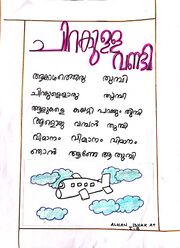 ചിറകുള്ള
വണ്ടി
ആകാശത്തൊരു തുമ്പി
ചിറകുള്ളൊരു തുമ്പി
ആളുകളെ കയറ്റി പറക്കും തുമ്പി
വമ്പൻ തുമ്പി
വിമാനം വിമാനം വിമാനം
ഞാൻ ആണേ ആ തുമ്പി